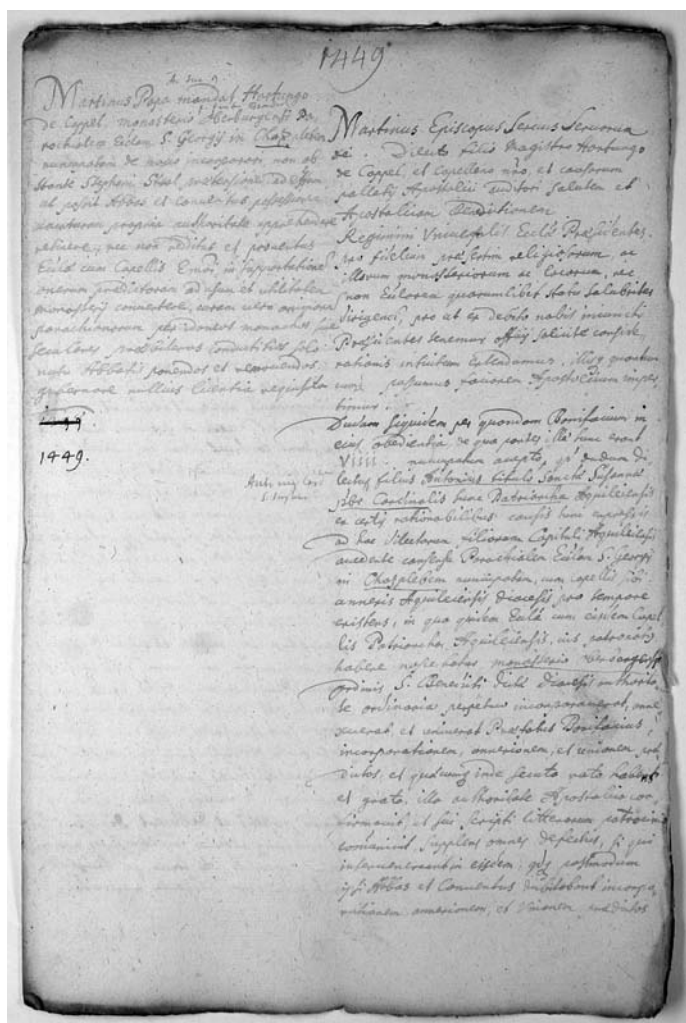 1449
Martinus Papa mandat Hartungo
de Cappel, monasterio Oberburgensi Pa,
rochialem Eccl̃am S. Georgÿ in Chosplebem
nuncupatam de novo incorporari non ob
stante Stephani
ut possit Abbas et conventus possessionem
earumdem propria authoritate apprehendere
retinere, nec non reditus et proventus
Eccl̃ae cum Capellis in supportationem
onerum predictorum ad usum et utilitatem
monasterÿ convertere, curam vero animarum
parochianorum per idoneos monachos sive
seculares presbiteros conductitios solo
nutu Abbatis ponendos et removendos
gubernare nullius licentia requisita
1449.
Martinus Episcopus Servus Servorum
Dei. Dilecto filio Magistro Hartungo
de Cappel, et Capellano nr̃o, et causarum
pallatÿ Apostolici auditori Salutem et
Apostolicam Benedictionem.
Regimini Universalis Eccl̃ae Presidentes,
pro fidelium presertim religiosorum, ac
illorum monasteriorum ac locorum, nec
non Eccl̃arum quorumlibet statu salubriter
dirigendi, pro ut ex debito nobis iniuncti
Presidentes tenemur officÿ solicite conside
rationis intuitum extendimus, illisq quantum
cum possumus favorem Apostolicum imper
timur.
Dudum siquidem per quondam Bonifacium in
eius obedientia de qua partes illae tunc erant
VIIII. nuncupatum accepto, quod dudum di
lectus filius Antonius tituli Sanctae Susannae
p̃br Cardinalis tunc Patriarcha Aquileiensis
ex certis rationabilibus causis tunc expressis
ad hoc dilectorum filiorum Capituli Aquileiensis
accedente consensu Parochialem Eccl̃am S. Georgÿ
in Chosplebem nuncupatam, cum capellis sibi
annexis Aquileiensis diocesis pro tempore
existens, in qua quidem Eccl̃a cum eisdem Capel
lis Patriarcha Aquileiensis, ius patronatus
habere noscebatur monasterio Oberburgensi
ordinis S. Benedicti dictae Diocesis authorita
te ordinaria perpetuo incorporaverat, anne
xuerat, et univerat Praefatus Bonifacius,
incorporationem, annexionem, et unionem pre
dictos, et quaecumq inde secuta rata habens
et grata, illa authoritate Apostolica con
firmavit, et sui scripti litterarum patrocinio
communivit supplens omnes defectus, si qui
intervenerant in eisdem; postmodum
ipsi Abbas et Conventus dubitabant incorpo,
rationem annexionem, et unionem predictos